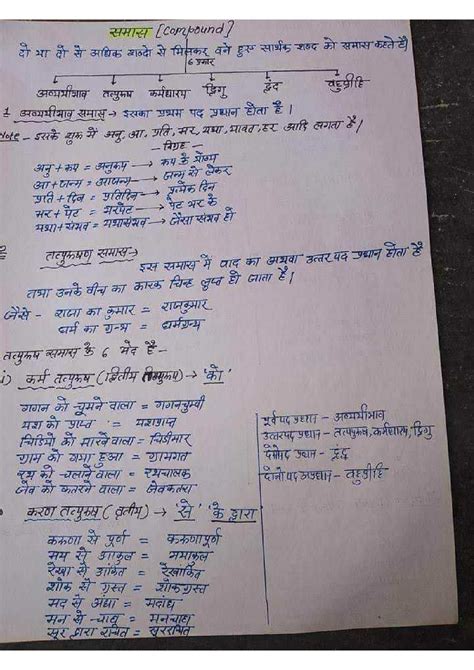 समास [Compound]
दो या दो से अधिक शब्दो से मिलकर बने हुए सार्थक शब्द को समास कहते है।
6 प्रकार
अव्ययीभाव तत्पुरूष कर्मधारय द्विगु द्वंद बहुव्रीहि
1 अव्ययीभाव समास → इसका प्रथम पद प्रधान होता है।
Note - इसके शुरू में अनु, आ, प्रति, भर, यथा, यावत, हर आदि लगता है।
- विग्रह -
अनु + रूप = अनुरूप → रूप के योग्य
आ + जन्म = आजन्म → जन्म से लेकर
प्रति + दिन = प्रतिदिन → प्रत्येक दिन
भर + पेट = भरपेट → पेट भर के
यथा + संभव = यथासंभव → जैसा संभव हो
तत्पुरूष समास →
इस समास में बाद का अथवा उत्तर पद प्रधान होता है
तथा उनके बीच का कारक चिन्ह लुप्त हो जाता है।
जैसे - राजा का कुमार = राजकुमार
धर्म का ग्रन्थ = धर्मग्रन्थ
तत्पुरूष समास के 6 भेद है -
i) कर्म तत्पुरूष (द्वितीय तत्पुरूष) → 'को'
गगन को चूमने वाला = गगनचुम्बी
यश को प्राप्त = यशप्राप्त
चिडियो को मारने वाला = चिडीमार
ग्राम को गया हुआ = ग्रामगत
रथ को चलाने वाला = रथचालक
जेब को कतरने वाला = जेबकतरा
पूर्वपद प्रधान - अव्ययीभाव
उत्तरपद प्रधान - तत्पुरूष, कर्मधारय, द्विगु
दोनोपद प्रधान - द्वंद्व
दोनोपद अप्रधान - बहुव्रीहि
करण तत्पुरूष (तृतीय) → 'से' 'के द्वारा'
करूणा से पूर्ण = करूणापूर्ण
भय से आकुल = भयाकुल
रेखा से अंकित = रेखांकित
शोक से ग्रस्त = शोकग्रस्त
मद से अंधा = मदांध
मन से चाहा = मनचाहा
सूर द्वारा रचित = सूररचित